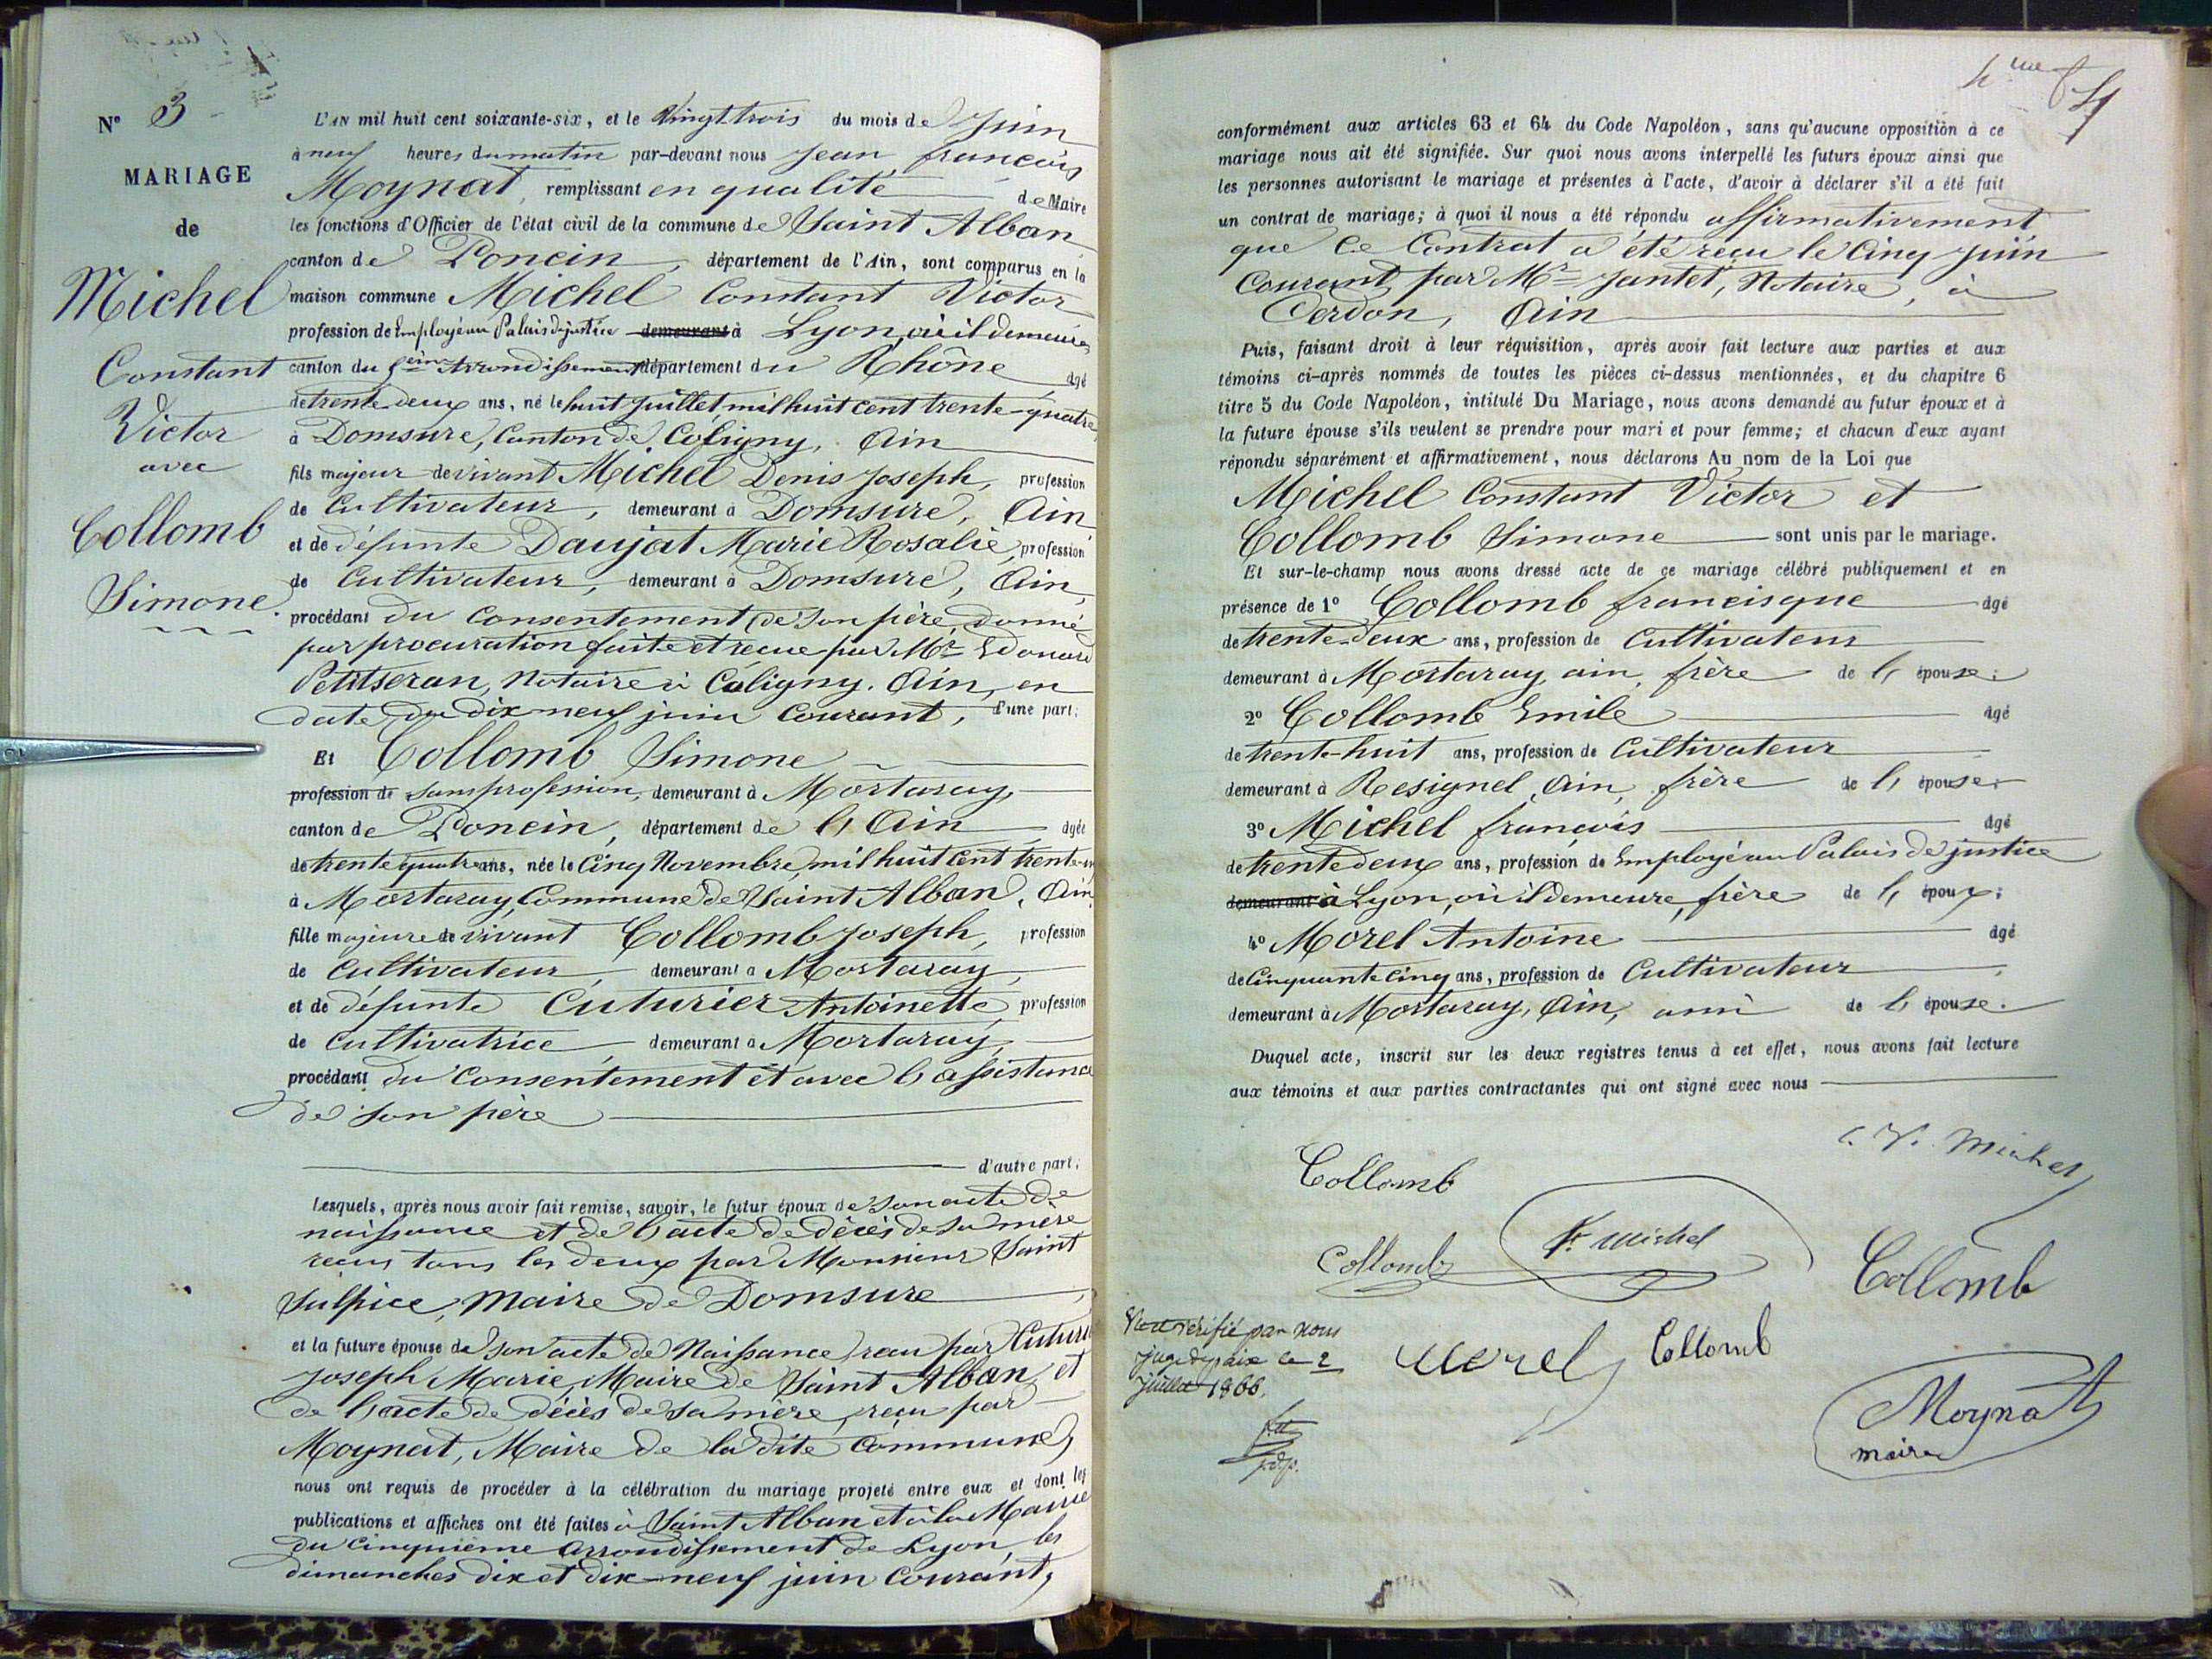 N° 3
MARIAGE
de
Michel
Constant
Victor
avec
Collomb
Simone.
L'AN mil huit cent soixante-six, et le Vingt trois du mois de Juin
à neuf heures du matin par-devant nous Jean françois
Moynat, remplissant en qualité de Maire
les fonctions d'Officier de l'état civil de la commune de Saint Alban
canton de Poncin, département de l'Ain, sont comparus en la
maison commune Michel Constant Victor
profession de Employé au Palais de justice demeurant à Lyon, où il demeure,
canton du 5ème Arrondissement département du Rhône âgé
de trente-deux ans, né le huit Juillet mil huit cent trente-quatre,
à Domsure, Canton de Coligny, Ain
fils majeur de vivant Michel Denis Joseph, profession
de Cultivateur, demeurant à Domsure, Ain
et de défunte Daujat Marie Rosalie, profession
de Cultivateur, demeurant à Domsure, Ain,
procédant du Consentement de Son père, donné
par procuration faite et reçue par Mr Edouard
Petitseran, Notaire à Coligny. Ain, en
date du dix-neuf juin Courant, d'une part;
Et Collomb Simone
profession de Sans profession, demeurant à Mortaray,
canton de Poncin, département de l'Ain âgée
de trente quatre ans, née le Cinq Novembre, mil huit Cent trente-
à Mortaray, Commune de Saint Alban, Ain
fille majeure de vivant Collomb Joseph, profession
de Cultivateur, demeurant à Mortaray,
et de défunte Cuturier Antoinette, profession
de Cultivatrice, demeurant à Mortaray,
procédant du Consentement et avec l'assistance
de Son père
d'autre part;
Lesquels, après nous avoir fait remise, savoir, le futur époux de Son acte de
naissance et de l'acte de décès de Sa mère
reçus tous les deux par Monsieur Saint
Sulpice, Maire de Domsure,
et la future épouse de Son acte de Naissance, reçu par Cuturi
Joseph Marie, Maire de Saint Alban, et
de l'acte de décès de Sa mère, reçu par
Moynat, Maire de la dite Commune,
nous ont requis de procéder à la célébration du mariage projeté entre eux et dont les
publications et affiches ont été faites à Saint Alban et à la Mairie
du Cinquième Arrondissement de Lyon, les
dimanches dix et dix-neuf juin Courant,
conformément aux articles 63 et 64 du Code Napoléon, sans qu'aucune opposition à ce
mariage nous ait été signifiée. Sur quoi nous avons interpellé les futurs époux ainsi que
les personnes autorisant le mariage et présentes à l'acte, d'avoir à déclarer s'il a été fait
un contrat de mariage; à quoi il nous a été répondu affirmativement
que Ce Contrat a été reçu le Cinq juin
Courant par Mr Jantet, Notaire, à
Cerdon, Ain
Puis, faisant droit à leur réquisition, après avoir fait lecture aux parties et aux
témoins ci-après nommés de toutes les pièces ci-dessus mentionnées, et du chapitre 6
titre 5 du Code Napoléon, intitulé Du Mariage, nous avons demandé au futur époux et à
la future épouse s'ils veulent se prendre pour mari et pour femme; et chacun d'eux ayant
répondu séparément et affirmativement, nous déclarons Au nom de la Loi que
Michel Constant Victor et
Collomb Simone sont unis par le mariage.
Et sur-le-champ nous avons dressé acte de ce mariage célébré publiquement et en
présence de 1° Collomb francisque âgé
de trente-deux ans, profession de Cultivateur
demeurant à Mortaray, ain, frère de l'épouse;
2° Collomb Emile âgé
de trente-huit ans, profession de Cultivateur
demeurant à Resignel, Ain, frère de l'épouse;
3° Michel françois âgé
de trente deux ans, profession de Employé au Palais de justice
demeurant à Lyon, où il demeure, frère de l'époux;
4° Morel Antoine âgé
de Cinquante cinq ans, profession de Cultivateur,
demeurant à Mortaray, Ain, ami de l'épouse.
Duquel acte, inscrit sur les deux registres tenus à cet effet, nous avons fait lecture
aux témoins et aux parties contractantes qui ont signé avec nous
C. V. Michel
Collomb
fr. Michel
Collomb
Collomb
vérifié par nous
juge de paix le 2
juillet 1866.
Morel
Collomb
Moynat
maire